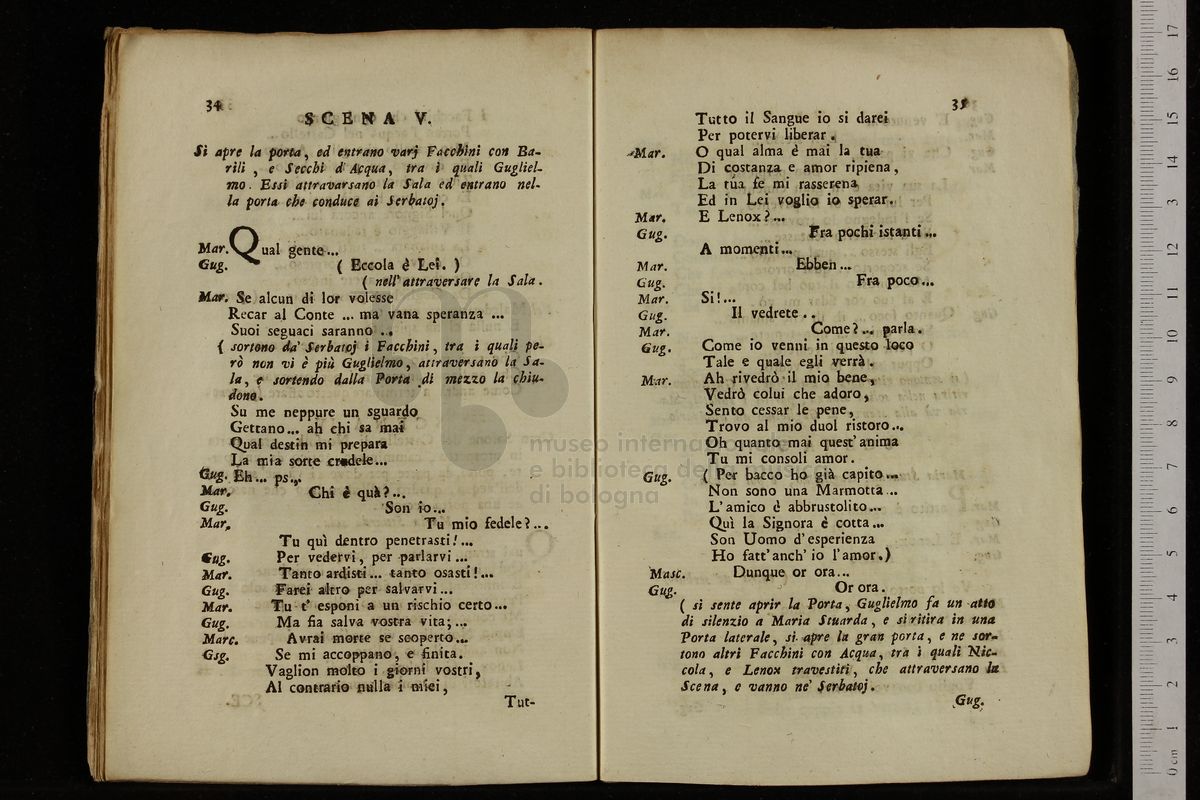 34
SCENA V.
Si apre la porta, ed entrano varj Facchini con Ba-
rili , e Secchi d' Acqua, tra i quali Gugliel-
mo. Essi attravarsano la Sala ed entrano nel-
la porta che conduce ai Serbatoj.
Mar. Qual gente...
Gug. ( Eccola è Lei. )
( nell' attraversare la Sala.
Mar. Se alcun di lor volesse
Recar al Conte ... ma vana speranza ...
Suoi seguaci saranno ..
( sortono da' Serbatoj i Facchini, tra i quali pe-
rò non vi è più Guglielmo, attraversano la Sa-
la, e sortendo dalla Porta di mezzo la chiu-
dono.
Su me neppure un sguardo
Gettano... ah chi sa mai
Qual destin mi prepara
La mia sorte crudele...
Gug. Eh... ps...
Mar. Chi è quà?...
Gug. Son io...
Mar. Tu mio fedele?...
Tu quì dentro penetrasti!...
Gug. Per vedervi, per parlarvi...
Mar. Tanto ardisti... tanto osasti!...
Gug. Farei altro per salvarvi...
Mar. Tu t' esponi a un rischio certo...
Gug. Ma fia salva vostra vita;...
Marc. Avrai morte se scoperto...
Gsg. Se mi accoppano, e finita.
Vaglion molto i giorni vostri,
Al contrario nulla i miei,
Tut-
35
Tutto il Sangue io si darei
Per potervi liberar.
Mar. O qual alma è mai la tua
Di costanza e amor ripiena,
La tua fe mi rasserena
Ed in Lei voglio io sperar.
Mar. E Lenox?...
Gug. Fra pochi istanti...
A momenti...
Mar. Ebben...
Gug. Fra poco...
Mar. Si!...
Gug. Il vedrete..
Mar. Come?... parla.
Gug. Come io venni in questo loco
Tale e quale egli verrà.
Mar. Ah rivedrò il mio bene,
Vedrò colui che adoro,
Sento cessar le pene,
Trovo al mio duol ristoro...
Oh quanto mai quest' anima
Tu mi consoli amor.
Gug. ( Per bacco ho già capito...
Non sono una Marmotta...
L' amico è abbrustolito...
Quì la Signora è cotta...
Son Uomo d' esperienza
Ho fatt' anch' io l'amor.)
Masc. Dunque or ora...
Gug. Or ora.
( si sente aprir la Porta, Guglielmo fa un atto
di silenzio a Maria Stuarda, e si ritira in una
Porta laterale, si apre la gran porta, e ne sor-
tono altri Facchini con Acqua, tra i quali Nic-
cola, e Lenox travestiti, che attraversano la
Scena, e vanno ne' Serbatoj.
Gug.
museo interna
e biblioteca de
di bologna
0 cm 1 2 3 4 5 6 7 8 9 10 11 12 3 14 15 16 17